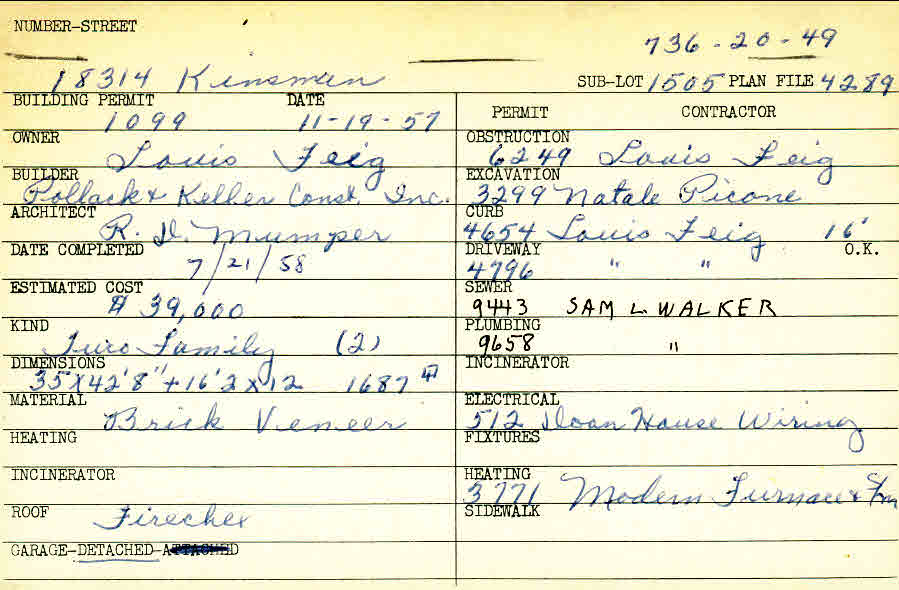 NUMBER-STREET
736-20-49
18314 Kinsman SUB-LOT 1505 PLAN FILE 4289
BUILDING PERMIT DATE
1099 11-19-57
OWNER
Louis Feig
BUILDER
Pollack & Keller Const. Inc.
ARCHITECT
R. D. Mumper
DATE COMPLETED
7/21/58
ESTIMATED COST
$ 39,000
KIND
Two Family (2)
DIMENSIONS
35 X 42'8" + 16'2 x 12 1687
MATERIAL
Brick Veneer
HEATING
INCINERATOR
ROOF
Firechex
GARAGE-DETACHED-ATTACHED
PERMIT CONTRACTOR
OBSTRUCTION
6249 Louis Feig
EXCAVATION
3299 Natale Picone
CURB
4654 Louis Feig 16'
DRIVEWAY O.K.
4796 " "
SEWER
9443 SAM L. WALKER
PLUMBING
9658 "
INCINERATOR
ELECTRICAL
512 Sloan House Wiring
FIXTURES
HEATING
3771 Modern Furnace &
SIDEWALK